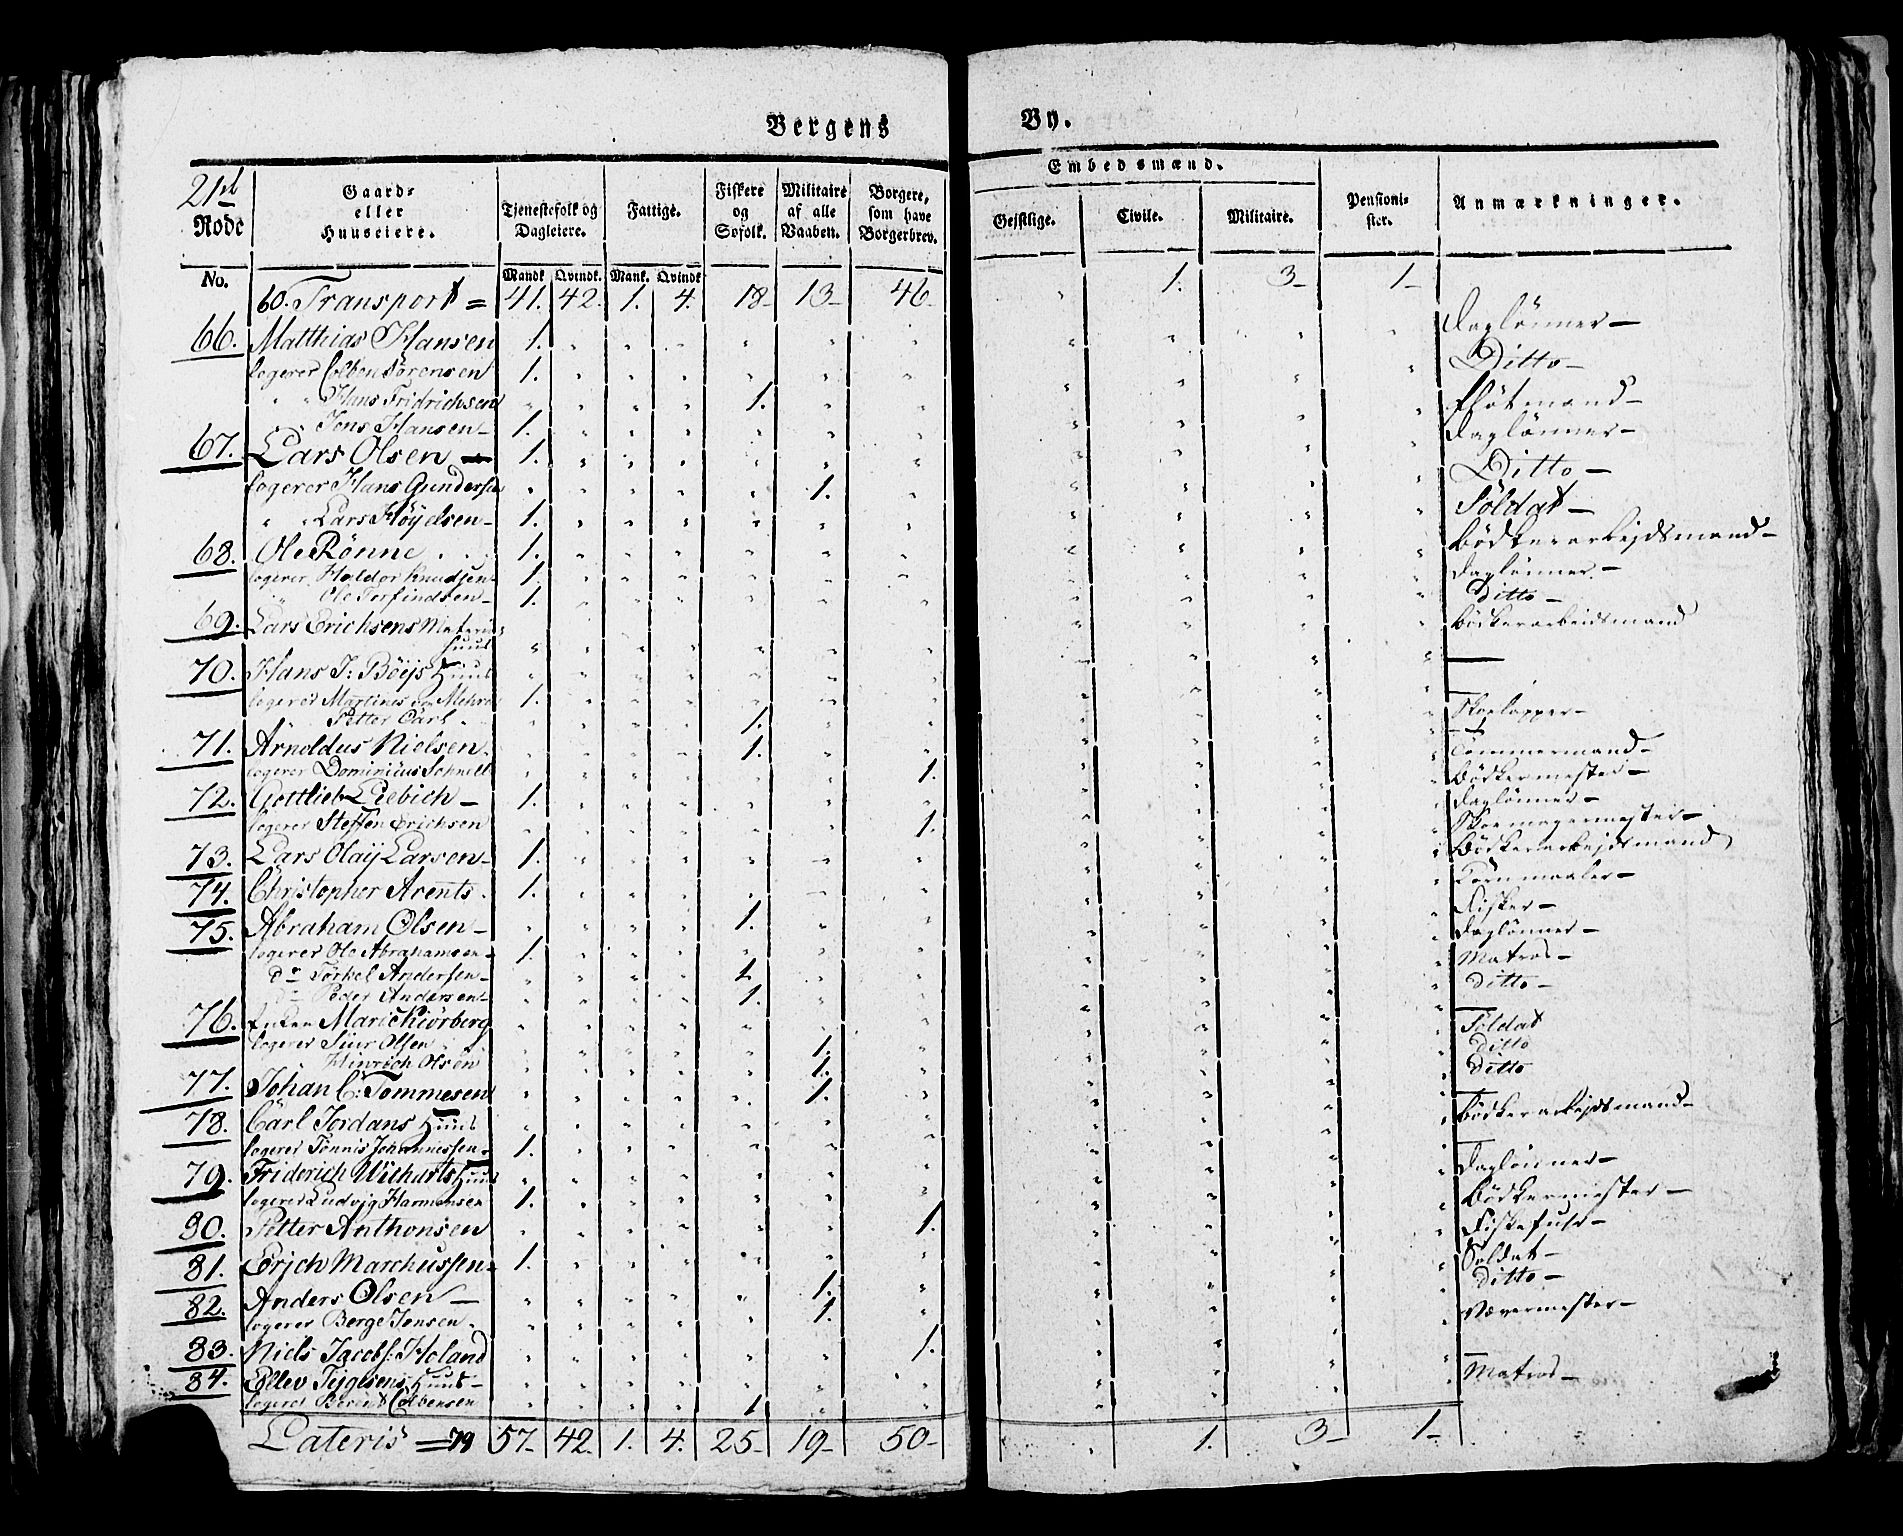 Bergens By.
21de Rode
Gaard- eller Huuseiere.
Tjenestefolk og Dagleiere.
Fattige.
Fiskere og Søfolk.
Militaire af alle Vaaben.
Borgere, som have Borgerbrev.
Embedsmænd.
Gejstlige.
Civile.
Militaire.
Pensionister.
Anmærkninger.
No.
Mandk. Qvindk. Mank. Qvindk.
60. Transport = 41. 42. 1. 4. 18 13 46 " 1. 3 1
66. Matthias Hansen 1. Daglønner
logerer Colben Sørensen 1. Ditto
" " Hans Fridrichsen 1. Fløtmand
Jens Hansen 1. Daglønner
67. Lars Olsen 1. Ditto
logerer Hans Gundersen 1. Soldat
" " Lars Høyelsen 1. Bødkerarbejdsmand
68. Ole Rønne 1. Daglønner
logerer Haldor Knudsen 1. Ditto
" Ole Torfindsen 1. Bødkerarbeidsmand
69. Lars Erichsens Huus
70. Hans J: Böijs Huus
logerer Martines 1. Skoelapper
Petter Carl 1.
71. Arnoldus Nielsen 1. Tømmermand
logerer Dominicus 1. Bødkermester
72. Gottlieb Liebich 1. Daglønner
logerer Steffen Erichsen 1. Skoemagermester
73. Lars Olaij Larsen 1. Bødkerarbejdsmand
74. Christopher Arents 1. Kornmaaler
75. Abraham Olsen 1. Fisker
logerer Ole Abrahamsen 1. Daglønner
do Torkel Andersen 1. Matros
do Peder Andersen 1. ditto
76. Enken Maric Kiörberg
logerer Siur Olsen 1. Soldat
Hinrich Olsen 1. Ditto
77. Johan C: Tommesen 1. Ditto
78. Carl Jordans Huus
logerer Tønnis Johannessen 1. Bødkerarbejdsmand
79. Friderich Wilharts Huus
logerer Ludvig Harmensen 1. Daglønner
80. Petter Anthonsen 1. Bødkermester
81. Erich Marchussen 1.
82. Anders Olsen 1. Soldat
logerer Berge Jensen 1. Ditto
83. Niels Jacobs: Holand 1. Vævermester
84. Ellev Huus
logerer Berent Colbensen 1. Matros
Lateris = 79 57 42 1. 4. 25 19 50 1. 3 1